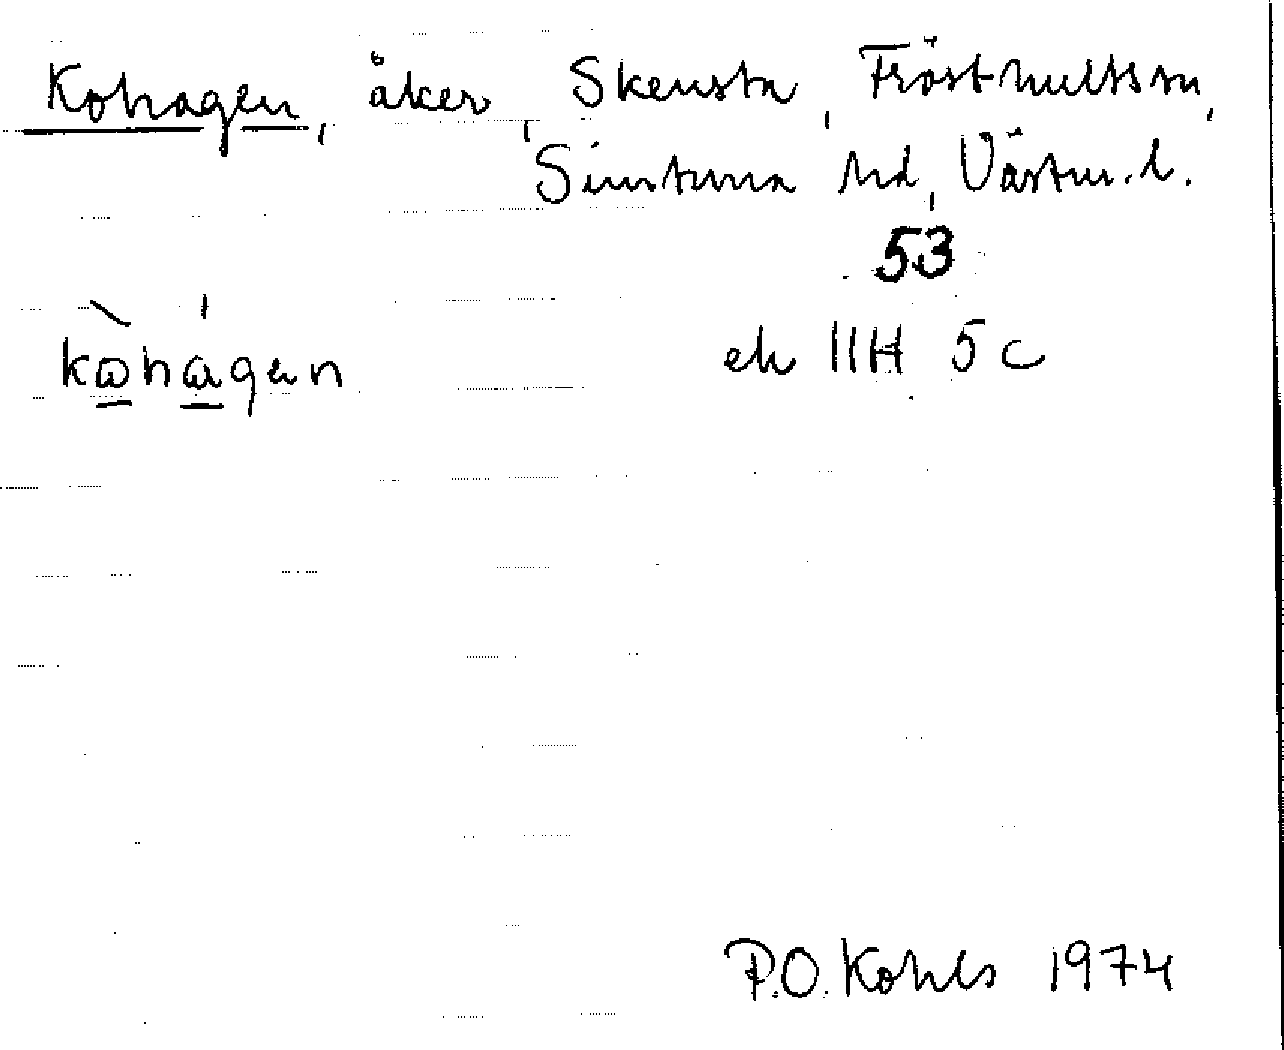 Kohagen, åker, Skensta, Frösthults sn,
Simtuna hd, Västm. l.
53
kòhágan
ek 11H 5c
P.O. Kohls 1974